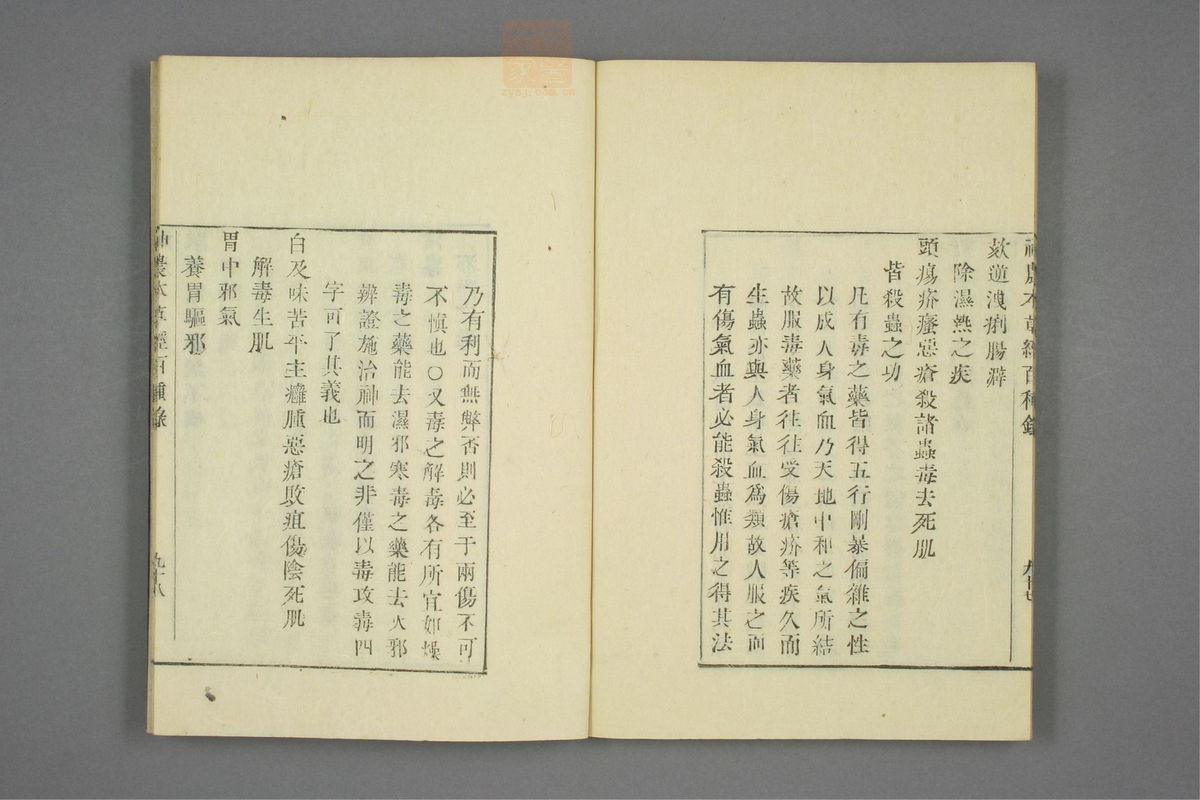 神農本草經百種錄
九十七
欬逆洩痢腸澼
除濕熱之疾
頭瘍疥瘙惡瘡殺諸蟲毒去死肌
皆殺蟲之功
凡有毒之藥皆得五行剛暴偏雜之性
以成人身氣血乃天地中和之氣所結
故服毒藥者往往受傷瘡疥等疾久而
生蟲亦與人身氣血爲類故人服之而
有傷氣血者必能殺蟲惟用之得其法
乃有利而無弊否則必至于兩傷不可
不愼也○又毒之解毒各有所宜如燥
毒之藥能去濕邪寒毒之藥能去火邪
辨證施治神而明之非僅以毒攻毒四
字可了其義也
白及味苦平主癰腫惡瘡敗疽傷陰死肌
解毒生肌
胃中邪氣
養胃驅邪
神農本草經百種錄
九十八
zysj.com.cn